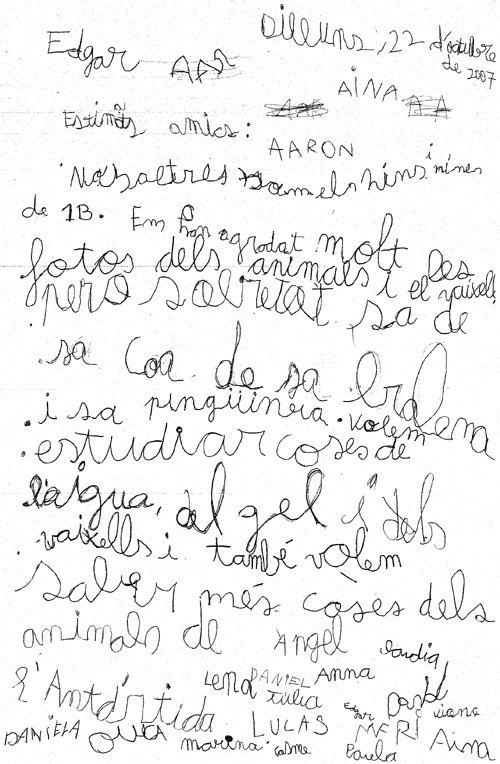 Dilluns, 22 d'octubre
de 2007
Edgar
AINA
Estimats amics:
AARON
Nosaltres som els nins i nines
de 1B. Ens han agradat molt les
fotos dels animals i el vaixell
pero sobretot sa de
sa coa de sa balena
i sa pingüinera. volem
estudiar coses de
l'aigua, del gel i dels
vaixells i també volem
saber més coses dels
animals de
l'Antàrtida
Angel
Claudia
Lena DANIEL Anna
Júlia
David
Edgar
viana
DANIELA
LUCAS
MERI
Aina
marina
cosme
Paula